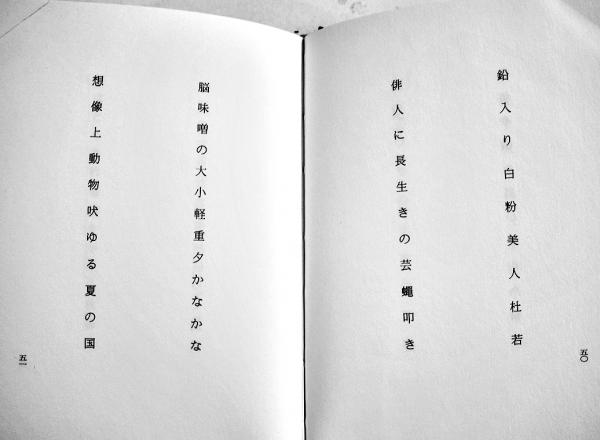 鉛入り白粉美人杜若
俳人に長生きの芸蠅叩き
五〇
脳味噌の大小軽重夕かなかな
想像上動物吠ゆる夏の国
五一